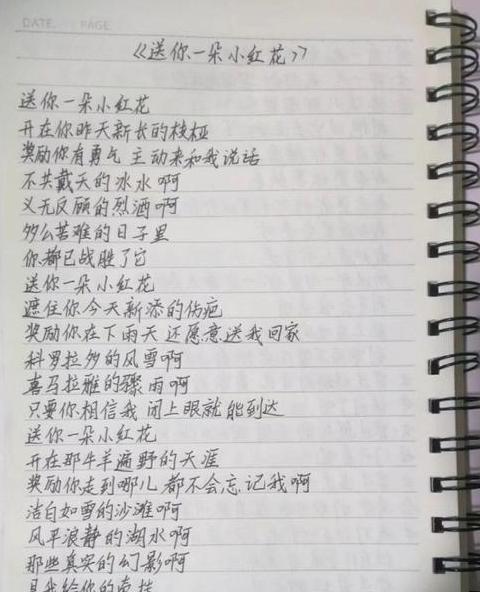 DATE. PAGE.
《送你一朵小红花》
送你一朵小红花
开在你昨天新长的枝桠
奖励你有勇气 主动来和我说话
不共戴天的冰水啊
义无反顾的烈酒啊
多么苦难的日子里
你都已战胜了它
送你一朵小红花
遮住你今天新添的伤疤
奖励你在下雨天还愿意送我回家
科罗拉多的风雪啊
喜马拉雅的骤雨啊
只要你相信我 闭上眼就能到达
送你一朵小红花
开在那牛羊遍野的天涯
奖励你走到哪儿都不会忘记我啊
洁白如雪的沙滩啊
风平浪静的湖水啊
那些真实的幻影啊
是我给你的牵挂